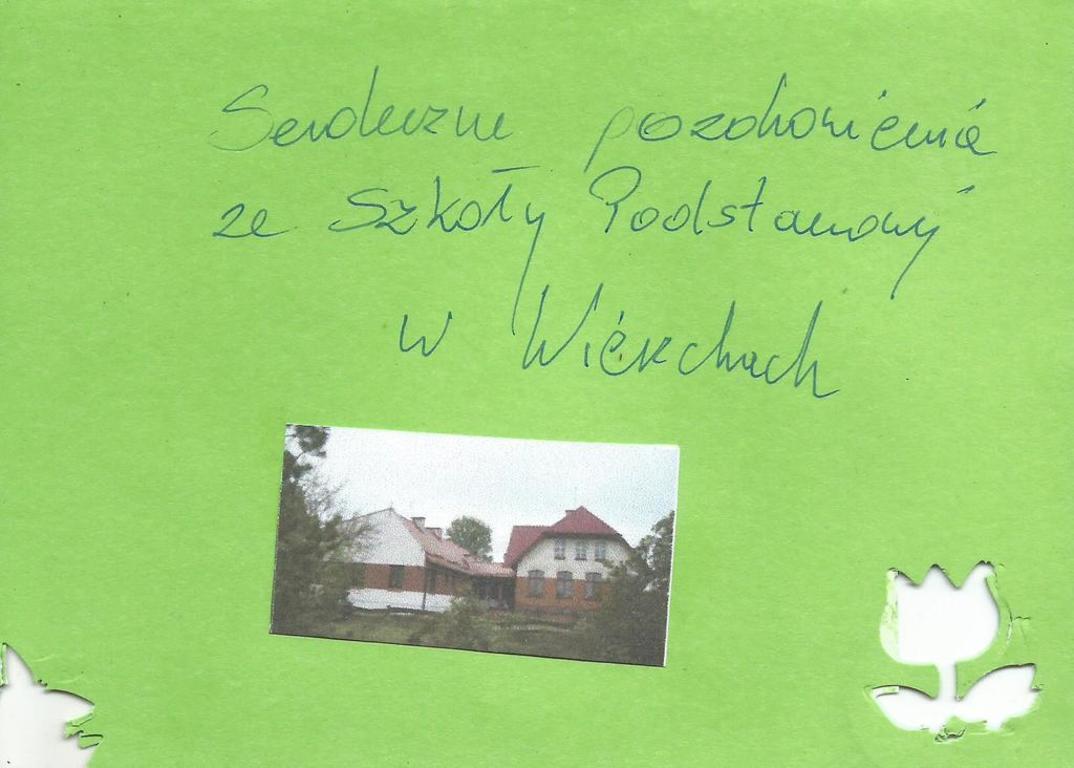 Serdeczne pozdrowienia
ze Szkoły Podstawowej
w Wierzchach